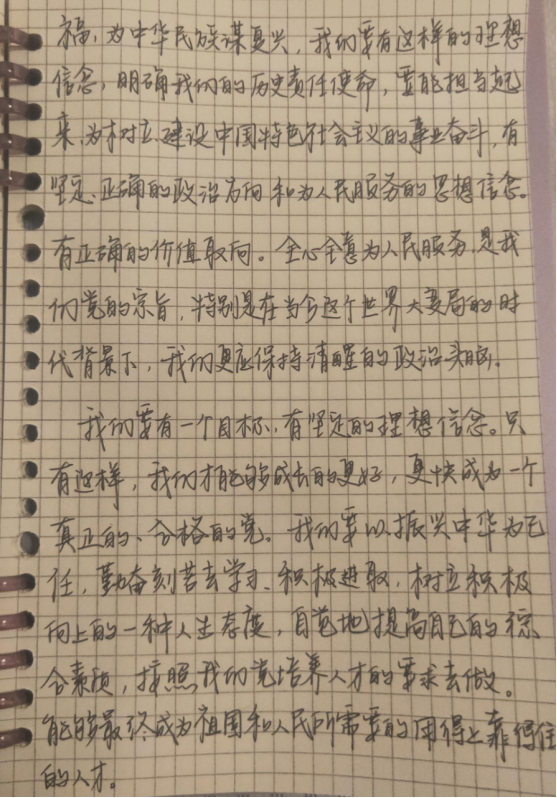 福，为中华民族谋复兴，我们要有这样的理想
信念，明确我们的历史责任使命，要能担当起
来，为树立建设中国特色社会主义的事业奋斗，有
坚定、正确的政治方向和为人民服务的思想信念。
有正确的价值取向。全心全意为人民服务是我
们党的宗旨，特别是在当今这个世界大变局的时
代背景下，我们更应保持清醒的政治头脑。
我们要有一个目标，有坚定的理想信念。只
有这样，我们才能够成长的更好，更快成为一个
真正的、合格的党。我们要以振兴中华为己
任，勤奋刻苦去学习、积极进取，树立积极
向上的一种人生态度，自觉地提高自己的综
合素质，按照我们党培养人才的要求去做。
能够最终成为祖国和人民所需要的用得上靠得住
的人才。